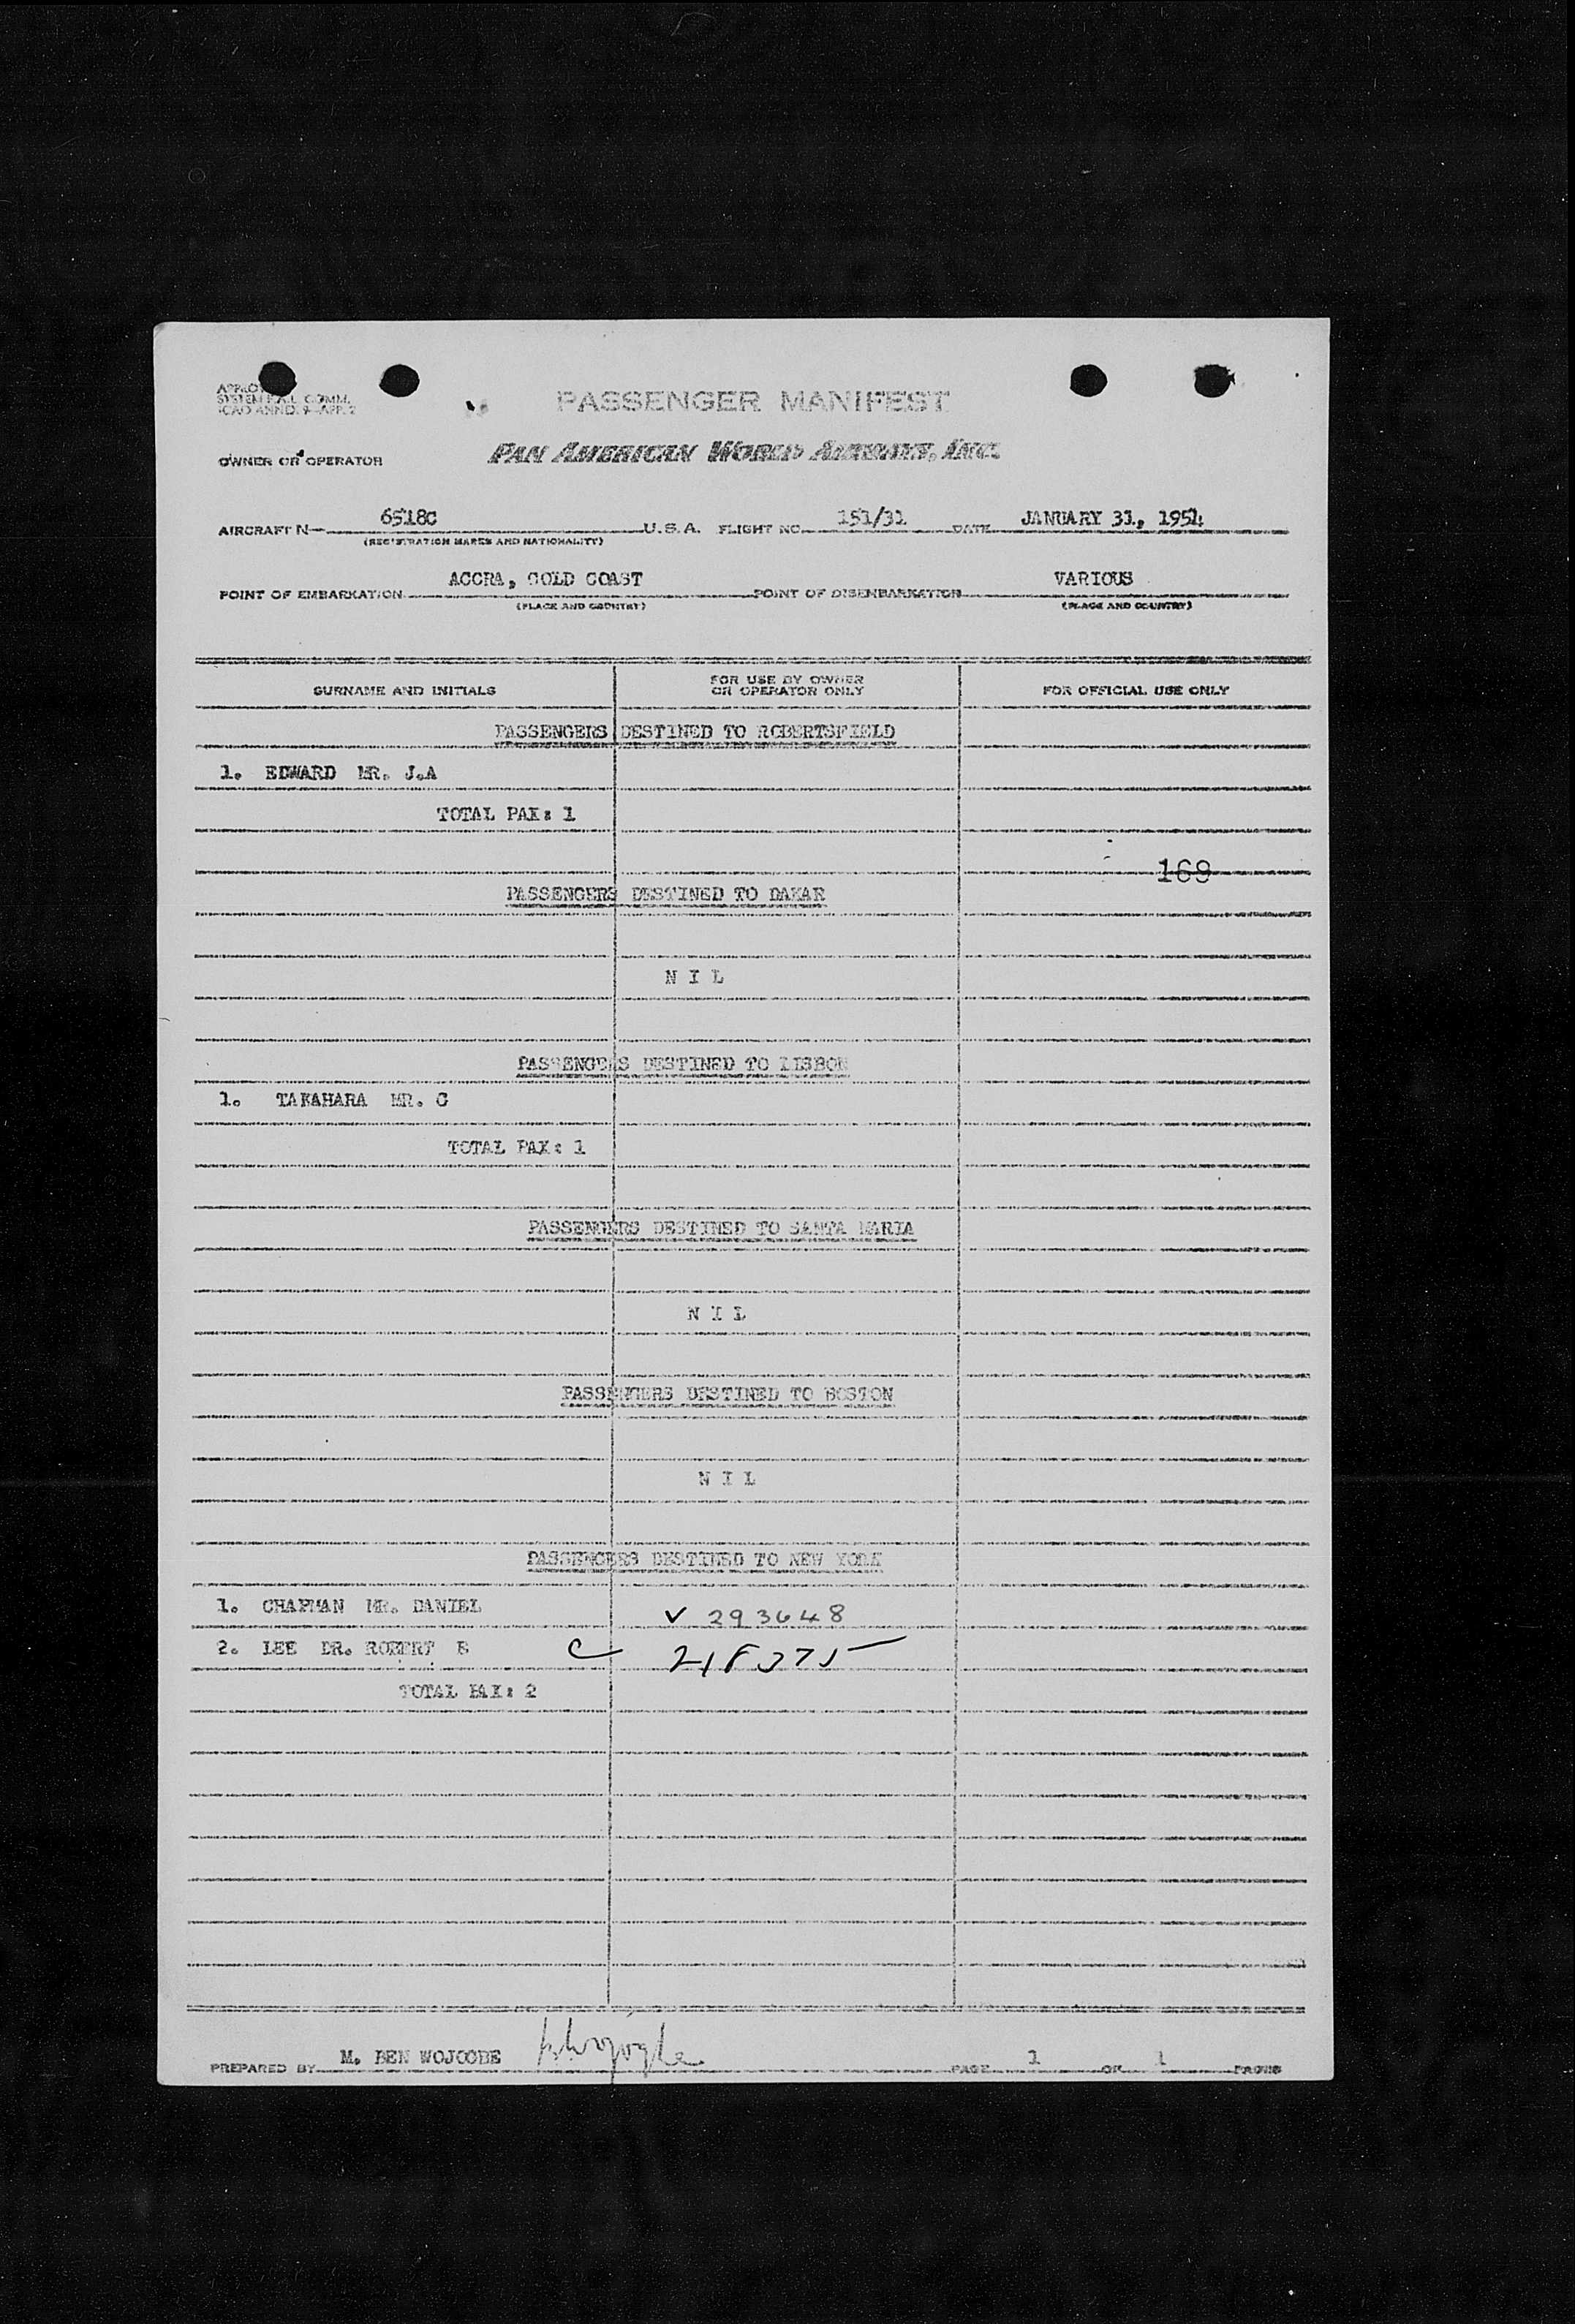 PASSENGER MANIFEST
OWNER OR OPERATOR PAN AMERICAN WORLD AIRWAYS, INC.
AIRCRAFT N— 6518C U.S.A. FLIGHT NO. 151/31 DATE JANUARY 31, 1954
(REGISTRATION MARKS AND NATIONALITY)
POINT OF EMBARKATION ACCRA, GOLD COAST POINT OF DISEMBARKATION VARIOUS
(PLACE AND COUNTRY) (PLACE AND COUNTRY)
SURNAME AND INITIALS FOR USE BY OWNER OR OPERATOR ONLY FOR OFFICIAL USE ONLY
PASSENGERS DESTINED TO ROBERTSFIELD
1. EDWARD MR. J.A
TOTAL PAX: 1
169
PASSENGERS DESTINED TO DAKAR
N I L
PASSENGERS DESTINED TO LISBON
1. TAKAHARA MR. G
TOTAL PAX: 1
PASSENGERS DESTINED TO SANTA MARIA
N I L
PASSENGERS DESTINED TO BOSTON
N I L
PASSENGERS DESTINED TO NEW YORK
1. CHAPMAN MR. DANIEL V 293648
2. LEE DR. ROBERT E C
TOTAL PAX: 2
PREPARED BY M. BEN WOJOODE PAGE 1 OF 1 PAGES